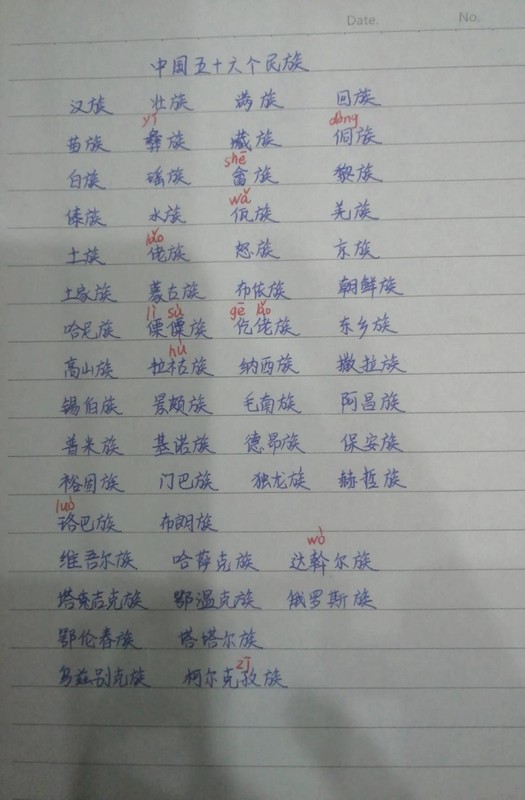 Date. No.
中国五十六个民族
汉族 壮族 满族 回族
yí dòng
苗族 彝族 藏族 侗族
shē
白族 瑶族 畲族 黎族
wǎ
傣族 水族 佤族 羌族
lǎo
土族 佬族 怒族 京族
土家族 蒙古族 布依族 朝鲜族
lì sù gē lǎo
哈尼族 傈僳族 仡佬族 东乡族
hù
高山族 拉祜族 纳西族 撒拉族
锡伯族 景颇族 毛南族 阿昌族
普米族 基诺族 德昂族 保安族
裕固族 门巴族 独龙族 赫哲族
luò
珞巴族 布朗族
wò
维吾尔族 哈萨克族 达斡尔族
塔吉克族 鄂温克族 俄罗斯族
鄂伦春族 塔塔尔族
zī
乌兹别克族 柯尔克孜族